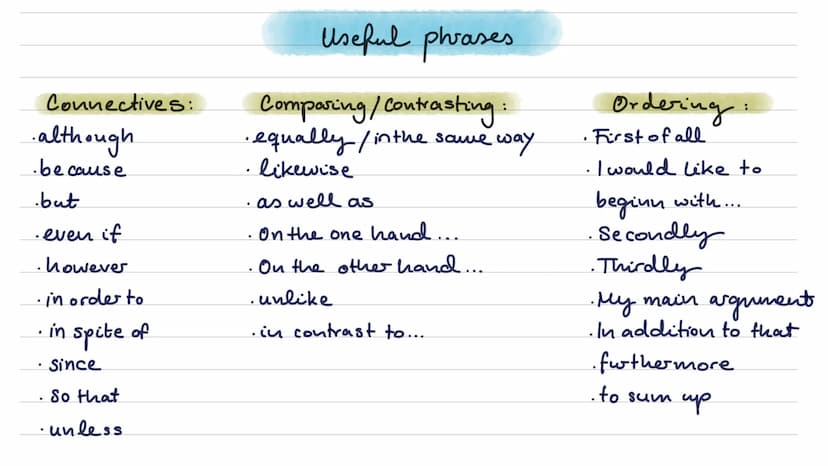 Useful phrases
Connectives:
· although
· because
· but
· even if
· however
· in order to
· in spite of
· since
· so that
· unless
Comparing/Contrasting:
· equally / in the same way
· likewise
· as well as
· On the one hand...
· On the other hand...
· unlike
· in contrast to...
Ordering:
· First of all
· I would like to
beginn with...
· Secondly
· Thirdly
· My main arguments
· In addition to that
· furthermore
· to sum up